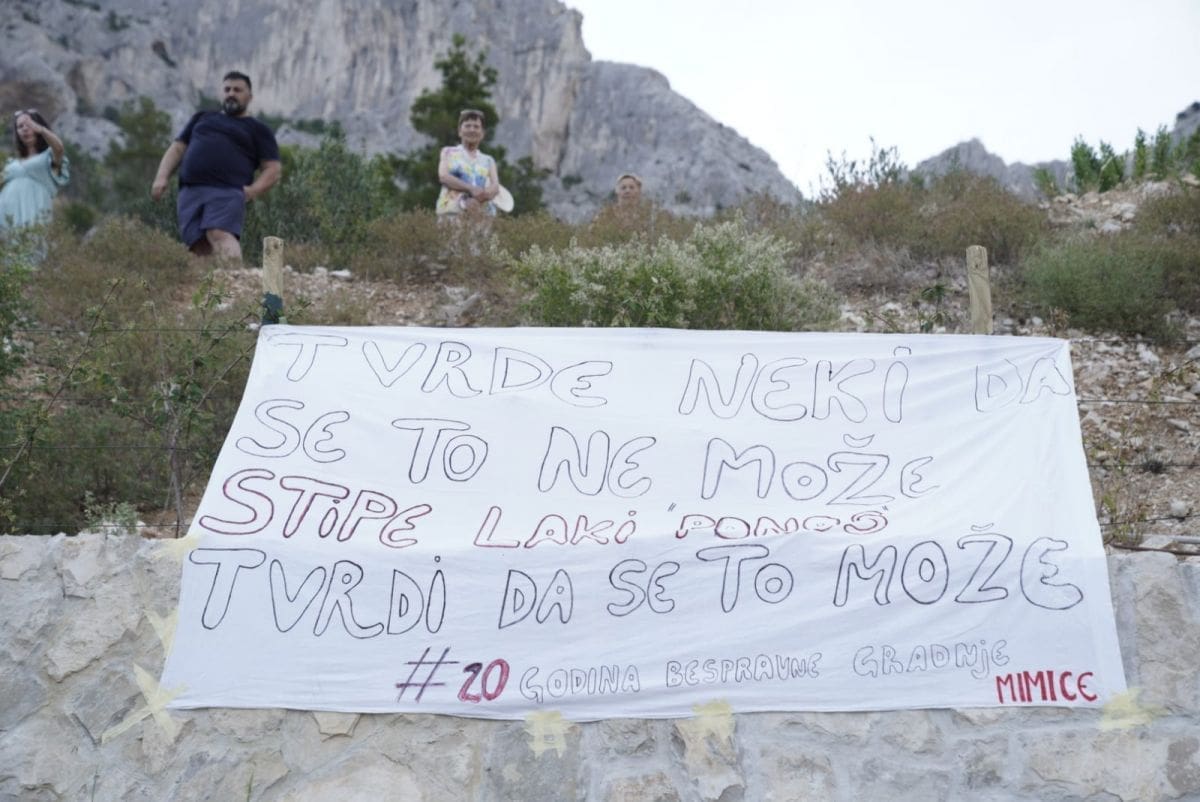 TVRDE NEKi DA
SE TO NE MOŽE
STiPE LAKi "PONOS"
TVRDi DA SE TO MOŽE
#20 GODINA BESPRAVNE GRADNJE
MIMICE